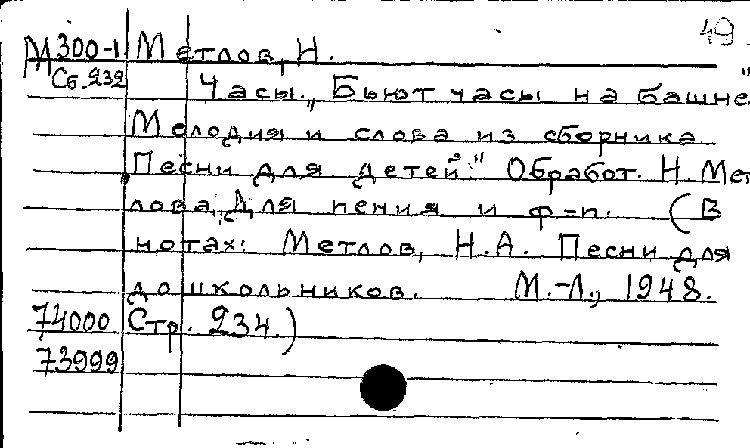 49
М300-1 Метлов, Н.
Сб.232
Часы. „Бьют часы на башне"
Мелодия и слова из сборника
Песни для детей." Обработ. Н. Мет
лова. Для пения и ф-п. (В
нотах: Метлов, Н.А. Песни для
дошкольников. М.-Л., 1948.
74000 Стр. 234.)
73999